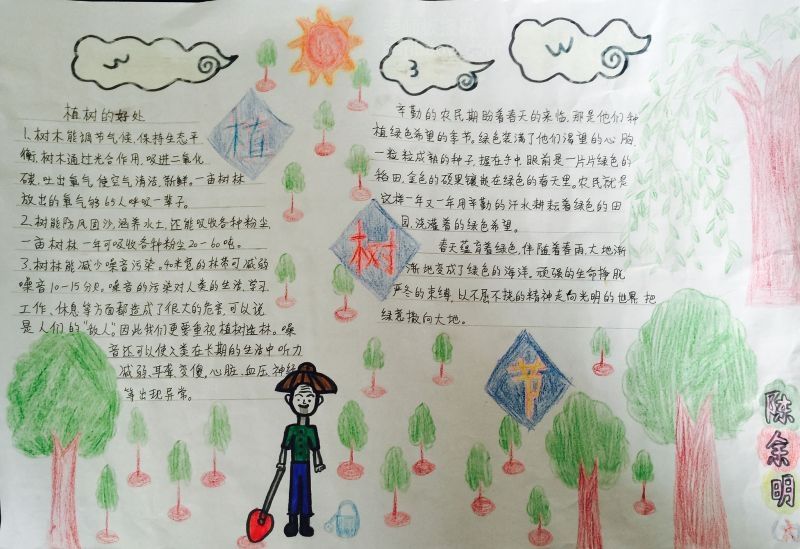 植树的好处
1、树木能调节气候,保持生态平
衡,树木通过光合作用,吸进二氧化
碳,吐出氧气使空气清洁、新鲜。一亩树林
放出的氧气够65人呼吸一辈子。
2、树能防风固沙,涵养水土,还能吸收各种粉尘,
一亩树林一年可吸收各种粉尘20-60吨。
3、树林能减少噪音污染。40米宽的林带可减弱
噪音10-15分贝。噪音的污染对人类的生活、学习
工作、休息等方面都造成了很大的危害,可以说
是人们的"敌人"。因此我们更要重视植树造林。噪
音还可以使人类在长期的生活中听力
减弱,耳聋变傻,心脏、血压、神经
等出现异常。
植
树
节
辛勤的农民期盼着春天的来临,那是他们种
植绿色希望的季节。绿色装满了他们渴望的心胸,
一粒粒成熟的种子,握在手中,眼前是一片片绿色的
稻田,金色的硕果镶嵌在绿色的春天里。农民就是
这样一年又一年用辛勤的汗水耕耘着绿色的田
园,浇灌着的绿色希望。
春天蕴育着绿色,伴随着春雨,大地渐
渐地变成了绿色的海洋。顽强的生命挣脱
严冬的束缚,以不屈不挠的精神走向光明的世界,把
绿意撒向大地。
3
W
陈余明